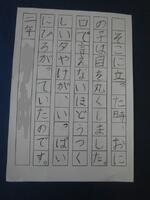 そこに立った時、おに
の子は目を丸くしました。
口で言えないほどうつく
しい夕やけが、いっぱい
にひろがっていたのです。
二年